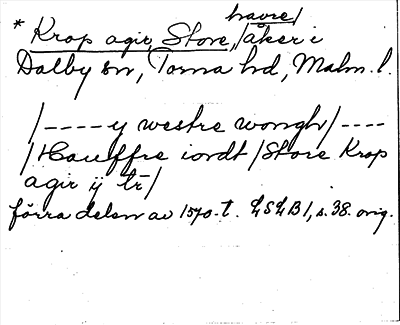 havre/
* Krop agir, Store, /åker i
Dalby sn, Torna hd, Malm. l.
/----y westre wongh/----
/Haulffre iordt/Store Krop
agir ij tr̄/
förra delen av 1570-t. LSLB 1, s. 38. orig.